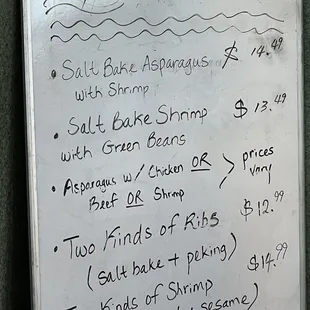 • Salt Bake Asparagus $ 14.49
with Shrimp
• Salt Bake Shrimp $ 13.49
with Green Beans
• Asparagus w/ Chicken OR > prices
Beef OR Shrimp vary
• Two Kinds of Ribs $12.99
(salt bake + peking)
Kinds of Shrimp $14.99
sesame)